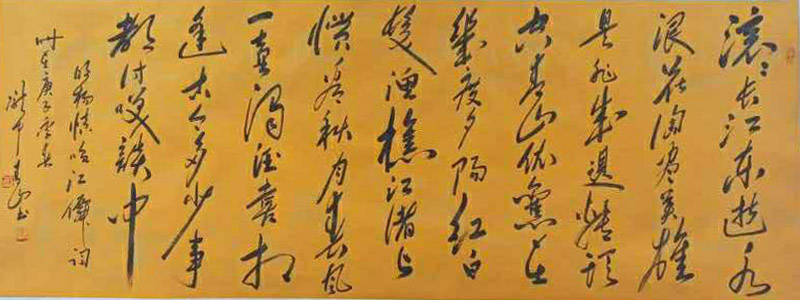 滚滚长江东逝水
浪花淘尽英雄
是非成败转头
空青山依舊在
幾度夕陽红白
髮漁樵江渚上
惯看秋月春风
一壶濁酒喜相
逢古今多少事
都付笑談中
明杨慎临江仙词
庚子